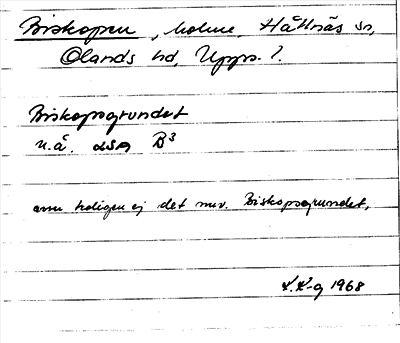 Biskopen, holme, Hållnäs sn,
Olands hd, Upps. l.
Biskopsgrundet
u.å. LSA B³
anm troligen ej det nuv. Biskopsgrundet,
1968